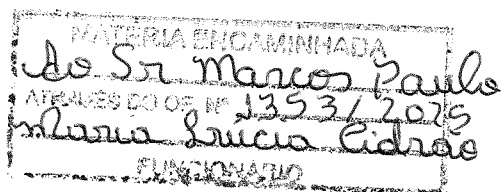 MATERIA ENCAMINHADA
Ao Sr Marcos Paulo
ATRAVÉS DO OF. Nº 1353/2025
Maria Lrucia Cidrao
FUNCIONARIO